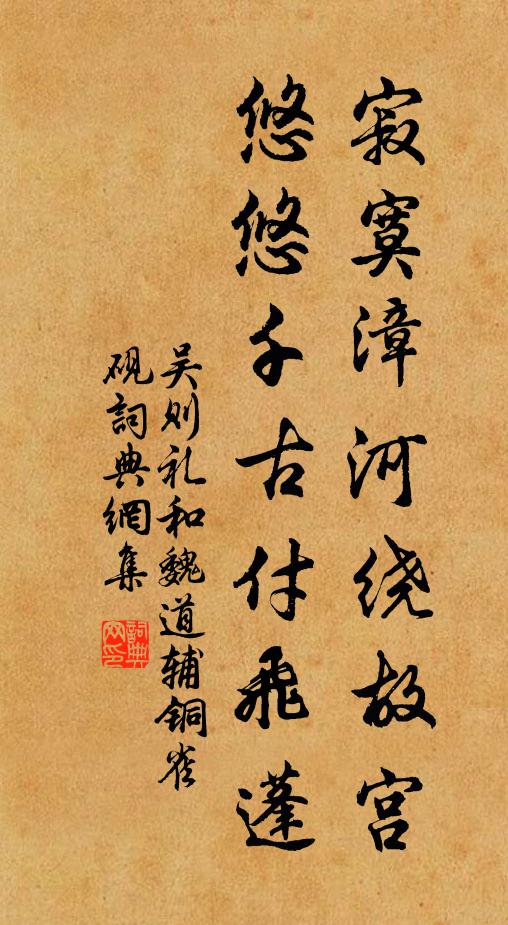 寂寞漳河绕故宫
悠悠千古付飛蓬
吴则礼和魏道辅铜雀
砚詞典網集
詞典
网印